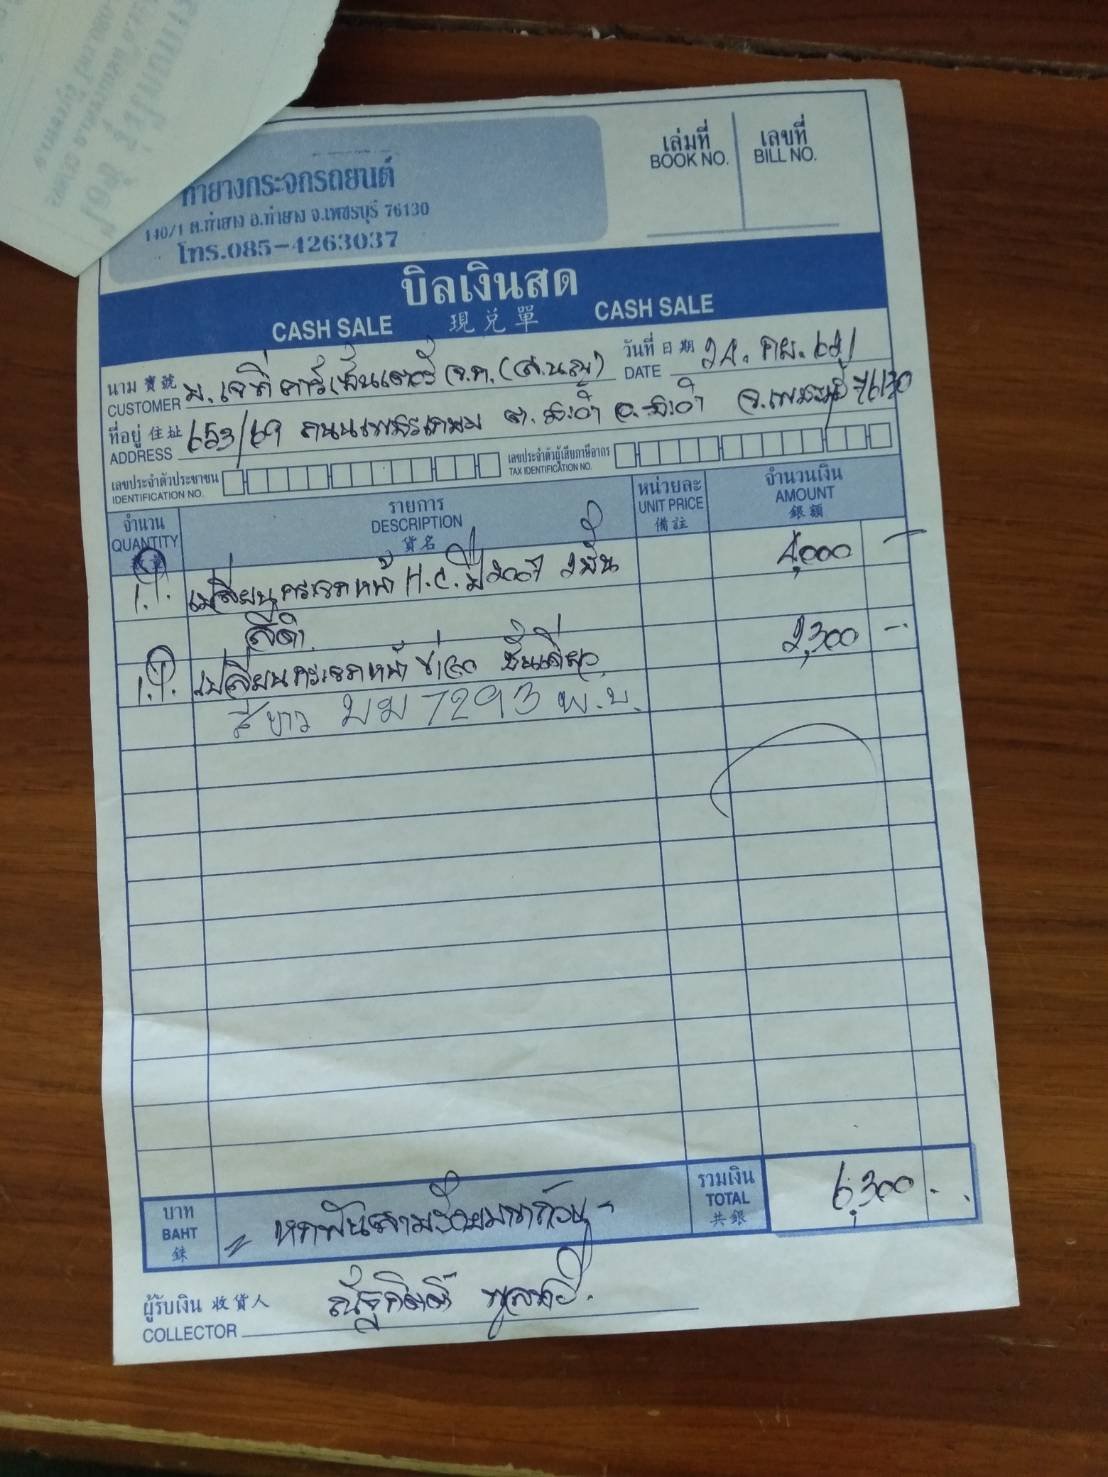 ท่ายางกระจกรถยนต์
140/1 ต.ท่ายาง อ.ท่ายาง จ.เพชรบุรี 76130
โทร.085-4263037
เล่มที่ เลขที่
BOOK NO. BILL NO.
บิลเงินสด
CASH SALE 現兌單 CASH SALE
นาม 寶號 บ. เจที คาร์เซ็นเตอร์ จ.ก. (ส.น.ญ) วันที่ 日期 24. กย.
CUSTOMER DATE
ที่อยู่ 住址 653/69 ถนน ต. ชะอำ อ. ชะอำ จ.เพชรบุรี 76120
ADDRESS
เลขประจำตัวประชาชน เลขประจำตัวผู้เสียภาษีอากร
IDENTIFICATION NO. TAX IDENTIFICATION NO.
จำนวน รายการ หน่วยละ จำนวนเงิน
QUANTITY DESCRIPTION UNIT PRICE AMOUNT
貨名 備註 銀額
เปลี่ยนกระจกหน้า H.C. ปี 2007 2 ชั้น 4,000 -
สีดำ
เปลี่ยนกระจกหน้า ชั้นเดียว 2,300 -
สีขาว บม 7293 พ.บ.
บาท หกพันสามร้อยบาทถ้วน รวมเงิน 6,300 -
BAHT TOTAL
銖 共銀
ผู้รับเงิน 收貨人 ณัฐกิตติ์
COLLECTOR